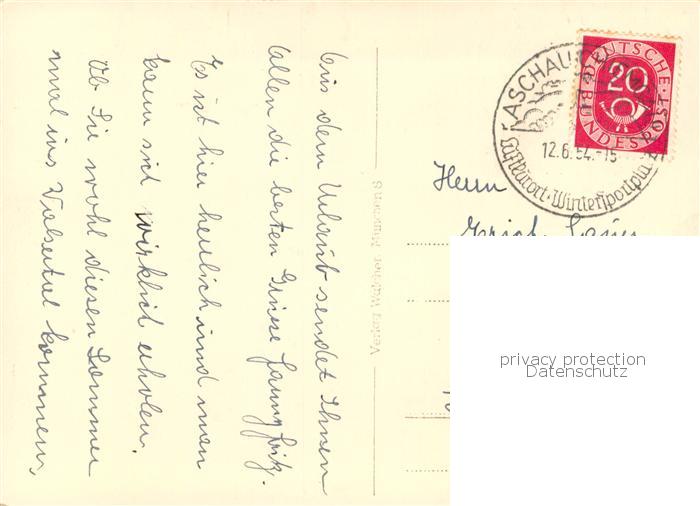 Aus dem Urlaub sendet Ihnen
Allen die besten Grüsse
Es ist hier herrlich und man
kann sich wirklich erholen.
Ob Sie wohl diesen Sommer
mal ins Vielseutal kommen,
Herrn
Erich
DEUTSCHE
BUNDESPOST
20
ASCHAU
12.6.54.-15
Luftkurort · Wintersportplatz
Verlag
privacy protection
Datenschutz